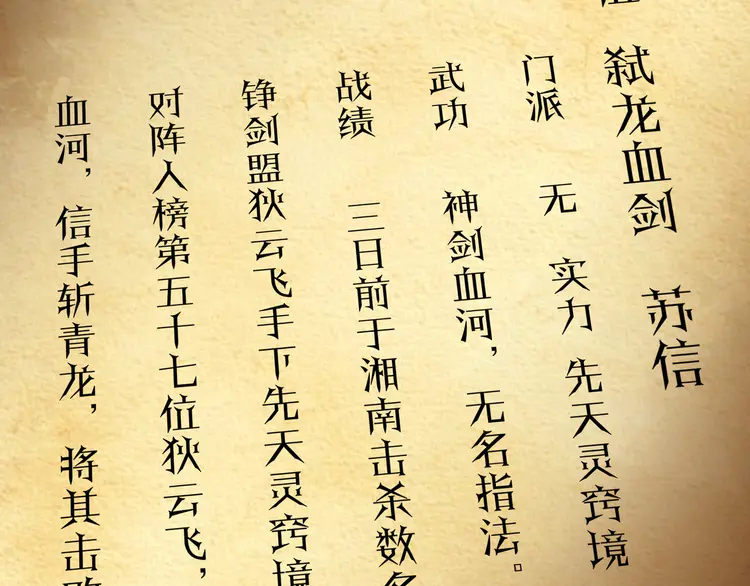 弑龙血剑 苏信
门派 无 实力 先天灵窍境
武功 神剑血河，无名指法。
战绩 三日前于湘南击杀数名
铮剑盟狄云飞手下先天灵窍境
对阵人榜第五十七位狄云飞，
血河，信手斩青龙，将其击败